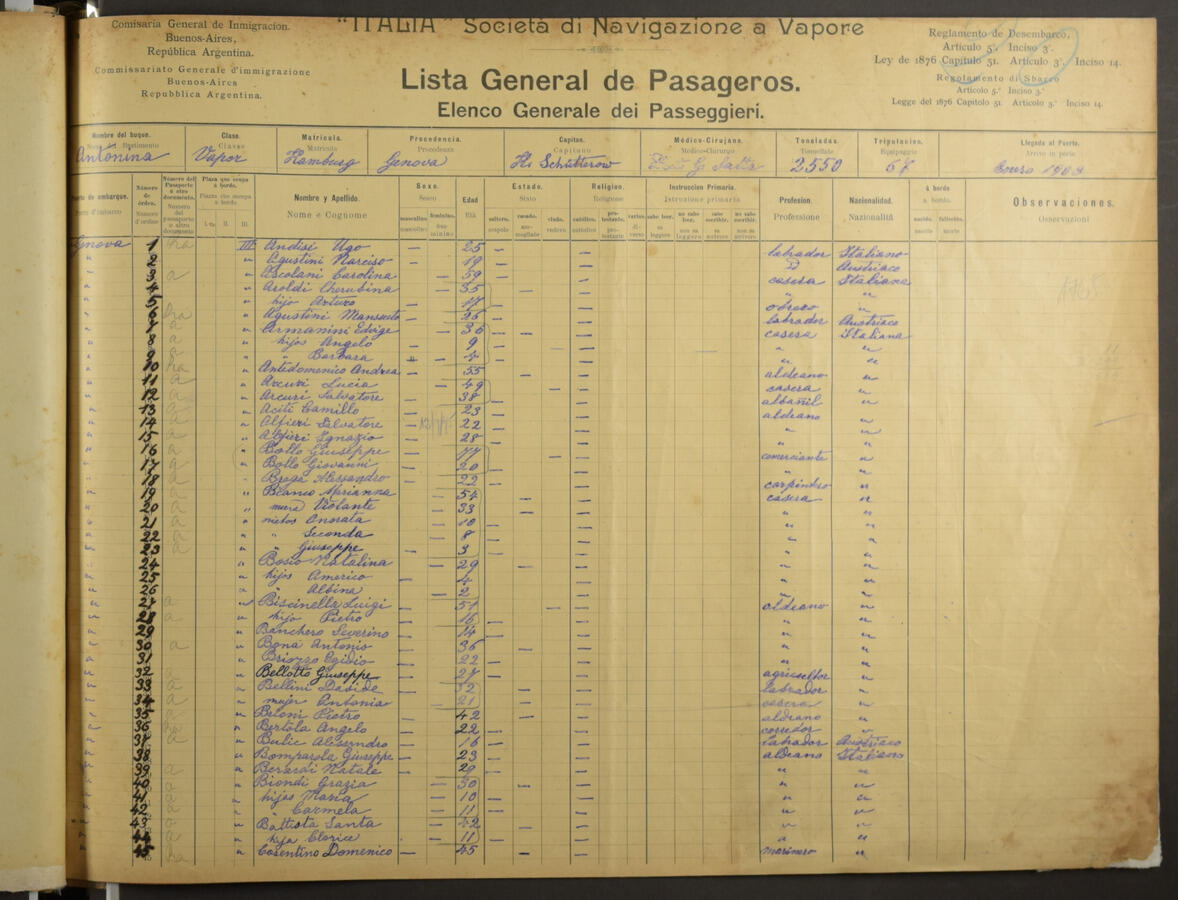 Comisaria General de Inmigracion.
Buenos-Aires,
República Argentina.
Commissariato Generale d'immigrazione
Buenos-Aires
Repubblica Argentina.
"ITALIA" Societá di Navigazione a Vapore
Lista General de Pasageros.
Elenco Generale dei Passeggieri.
Reglamento de Desembarco,
Articulo 5º. Inciso 3º.
Ley de 1876 Capitulo 51. Artículo 3º. Inciso 14.
Regolamento di Sbarco
Articolo 5.º Inciso 3.º
Legge del 1876 Capitolo 51. Articolo 3.º Inciso 14.
Nombre del buque. Clase. Matricula. Procedencia. Capitan. Médico-Cirujano. Toneladas. Tripulacion. Llegada al Puerto.
Classe Matricola Procedenza Capitano Medico-Chirurgo Tonnellate Equipaggio Arrivo in porto
Antonina Vapor Hamburg Genova 2550 67 1903
Puerto de embarque. Número de órden. Número del Pasaporte ú otro documento. Plaza que ocupa á bordo. Nombre y Apellido. Sexo. Edad Estado. Religion. Instruccion Primaria. Profesion. Nacionalidad. á bordo Observaciones.
Porto d'imbarco Numero d'ordine Numero del passaporto o altro documento Nome e Cognome Sesso Età Stato Religione Istruzione primaria Professione Nazionalità a bordo. Osservazioni
Genova 1 III Andisi Ugo 25 labrador Italiano
2 " Agustini Narciso 19 Austriaco
3 " Ascolani Carolina 59 casera Italiana
4 " Aroldi Cherubina 35 " "
5 " hijo Arturo 17 obrero "
6 " Agustini Mansueto 26 labrador Austriaco
7 " Armanini Edvige 36 casera Italiana
8 " hijos Angelo 9 " "
9 " " Barbara 4 " "
10 " Antidomenico Andrea 55 aldeano "
11 " Arcuri Lucia 49 casera "
12 " Arcuri Salvatore 38 albañil "
13 " Aciti Camillo 23 aldeano "
14 " Alfieri Salvatore 22 " "
15 " Alfieri Ignazio 28 " "
16 " Bollo Giuseppe 77 comerciante "
17 " Bollo Giovanni 20 " "
18 " Braga Alessandro 22 carpintero "
19 " Bianco Marianna 54 casera "
20 " Violante 33 " "
21 " nietos Onorata 10 " "
22 " " Seconda 8 " "
23 " " Giuseppe 3 " "
24 " Bosio Natalina 29 " "
25 " hijos Americo 4 " "
26 " " Albina 2 " "
27 " Biscinella Luigi 51 aldeano "
28 " hijo Pietro 16 " "
29 " Banchero Severino 14 " "
30 " Bona Antonio 36 " "
31 " Briozzo Egidio 22 " "
32 " Bellotto Giuseppe 27 agricultor "
33 " Bellini Davide 32 labrador "
34 " mujer Antonia 21 casera "
35 " Beloni Pietro 42 aldeano "
36 " Bertola Angelo 22 "
37 " Bulic Alessandro 16 labrador Austriaco
38 " Bomparola Giuseppe 23 aldeano Italiano
39 " Berardi Natale 29 " "
40 " Biondi Grazia 30 " "
41 " hijos Maria 10 " "
42 " " Carmela 11 " "
43 " Battista Santa 42 " "
44 " hija Clorice 11 " "
45 " Cosentino Domenico 45 marinero "